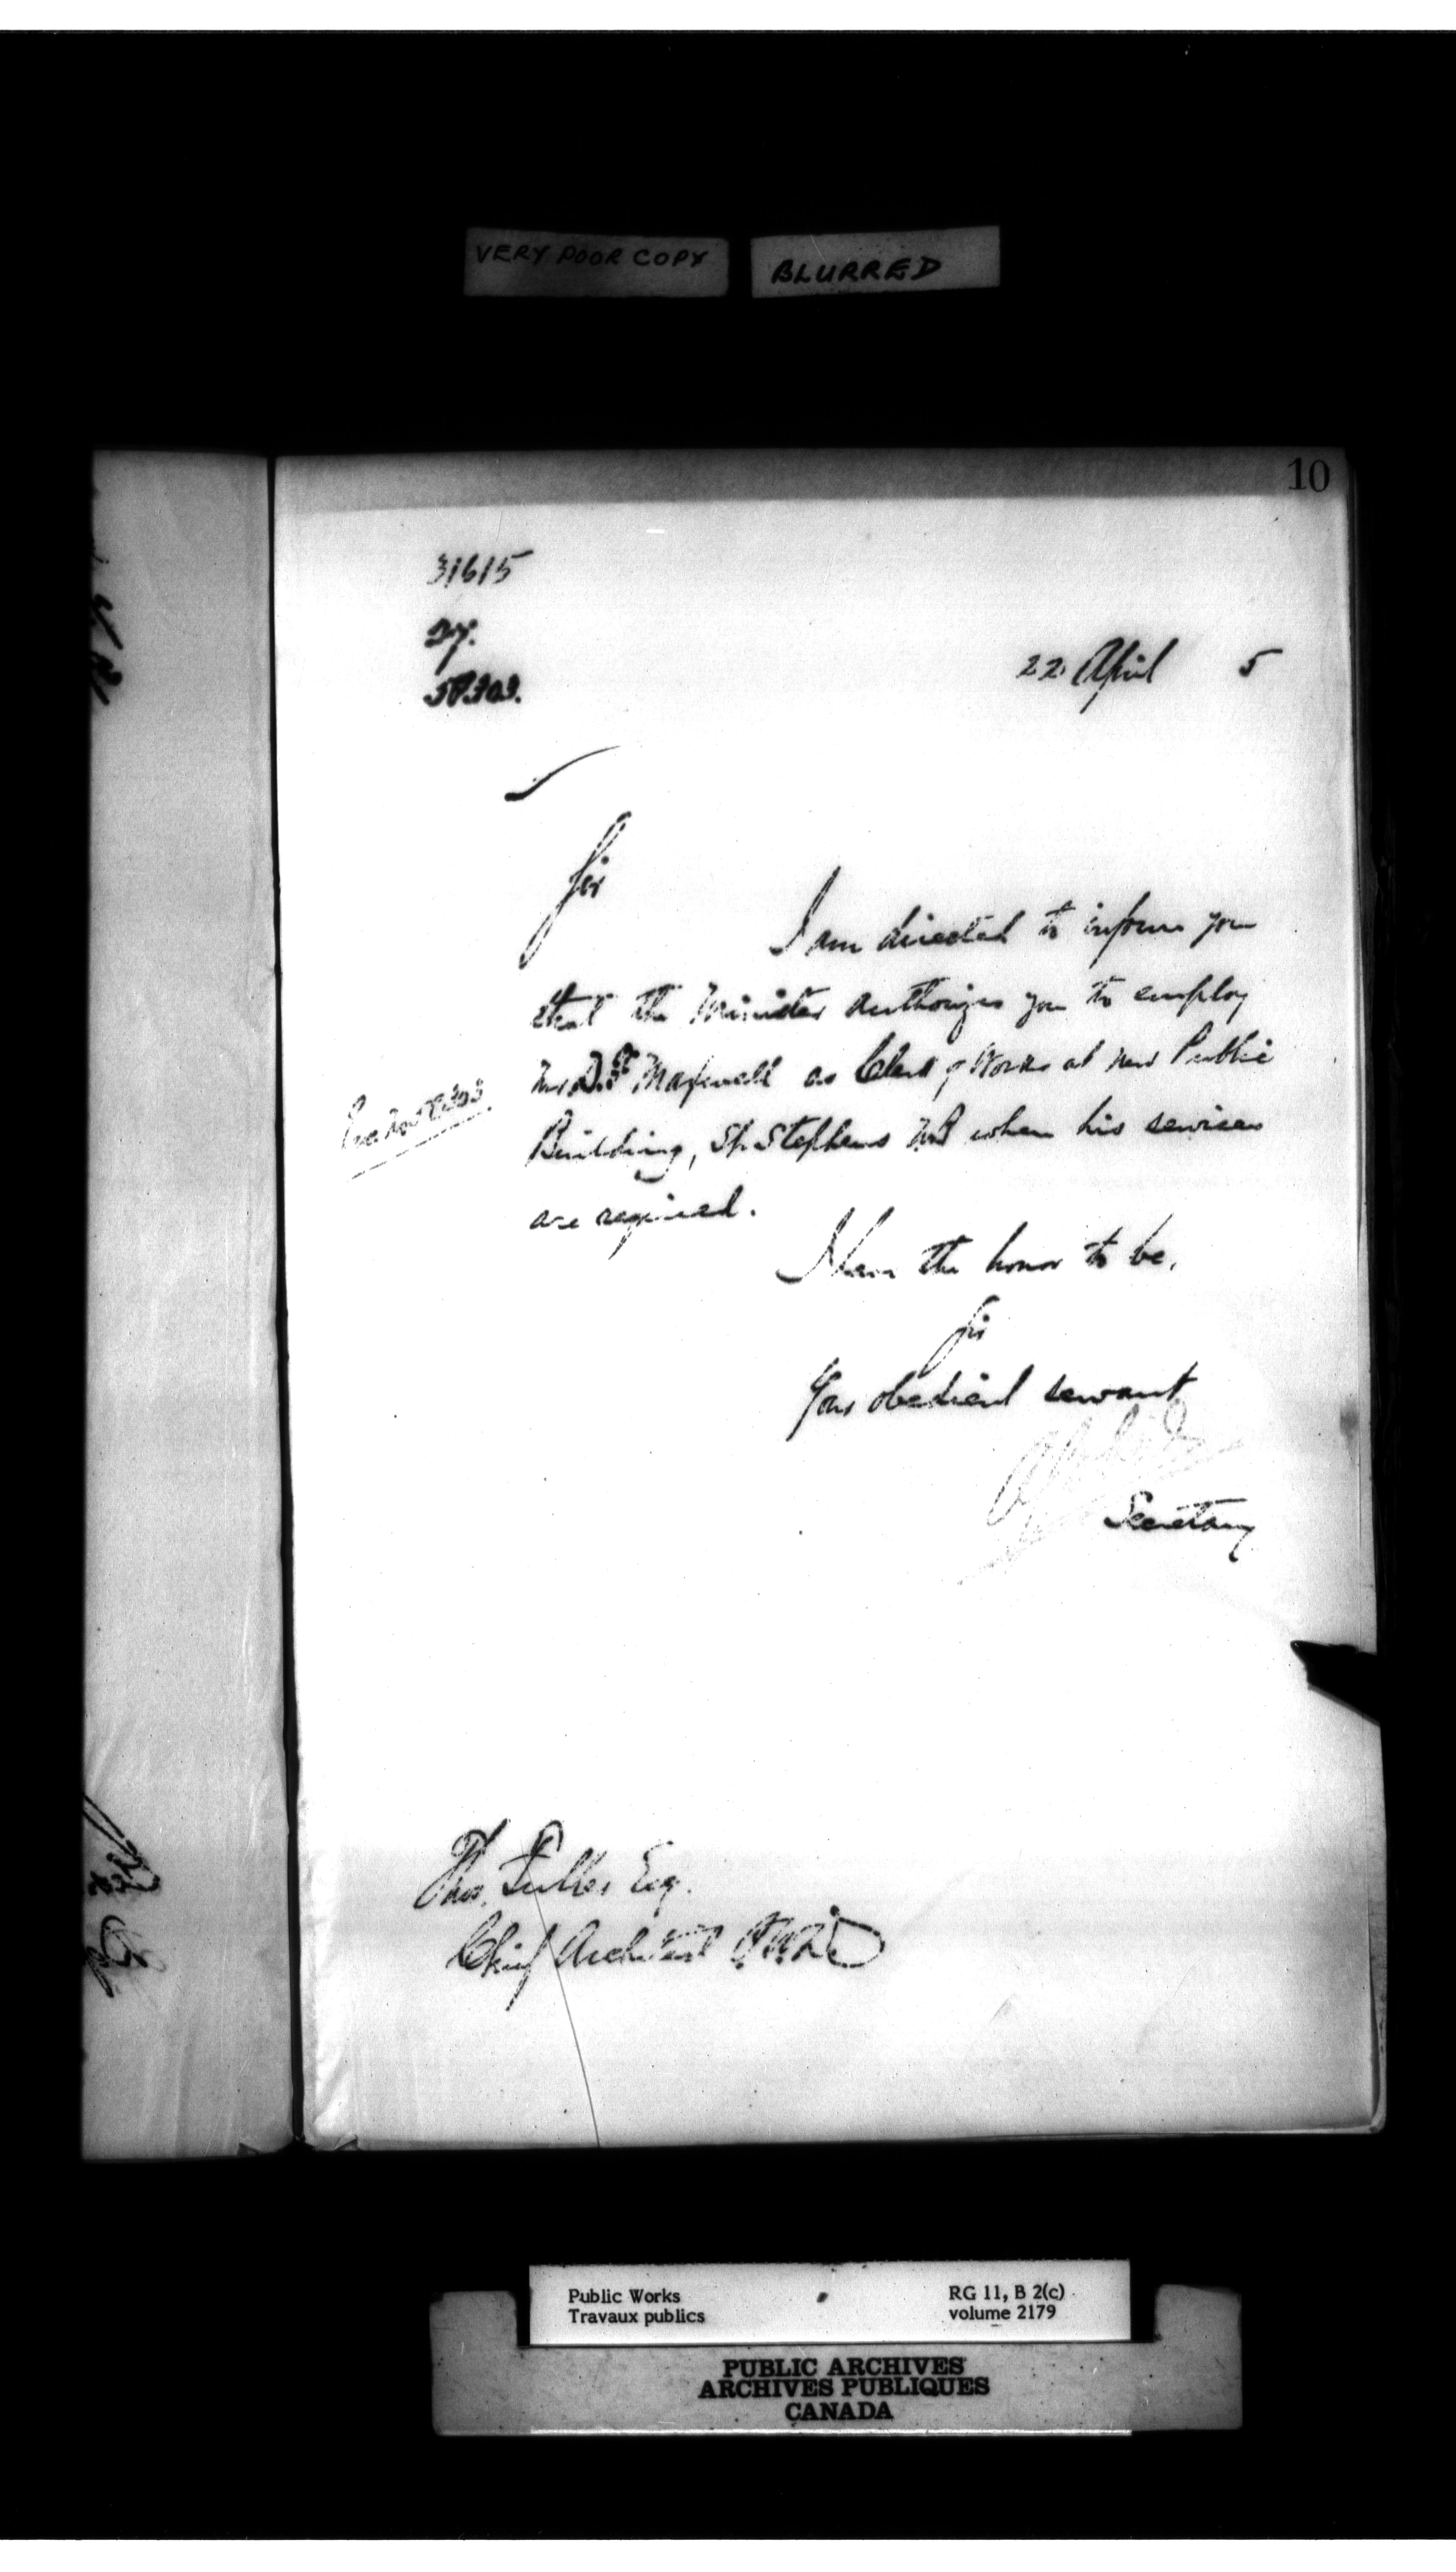 VERY POOR COPY
BLURRED
10
31615
22 April 5
Sir
I am directed to inform you
that the Minister authorizes you to employ
Mr D.F Maxwell as Clerk of Works at new Public
Building, St. Stephens NB when his services
are required.
I have the honor to be,
Sir
Your obedient servant
Secretary
Thos. Fuller Esq.
Chief Architect P.W.D
Public Works
Travaux publics
RG 11, B 2(c)
volume 2179
PUBLIC ARCHIVES
ARCHIVES PUBLIQUES
CANADA